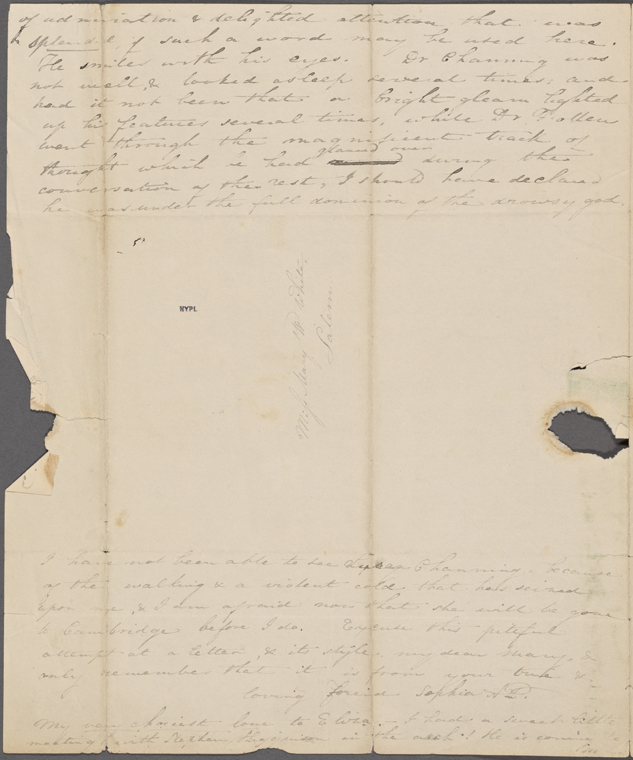 of admiration & delighted attention that was
splendid, if such a word may be used here.
He smiles with his eyes. Dr Channing was
not well, & looked asleep several times, and
had it not been that a bright gleam lighted
up his features several times, while Dr Follen
went through the magnificent track of
thought which he had glanced over during the
conversation of the rest, I should have declared
he was under the full dominion of the drowsy god.
NYPL
Miss Mary W. White.
Salem
I have not been able to see Channing, because
of the walking & a violent cold that has seized
upon me, & I am afraid now that she will be gone
to Cambridge before I do. Excuse this pitiful
attempt at a letter, & its style, my dear Mary, &
only remember that it is from your true &
loving friend Sophia A P.
My very choicest love to Eliza. I had a sweet little
meeting with Stephen Higginson in the week! He is coming